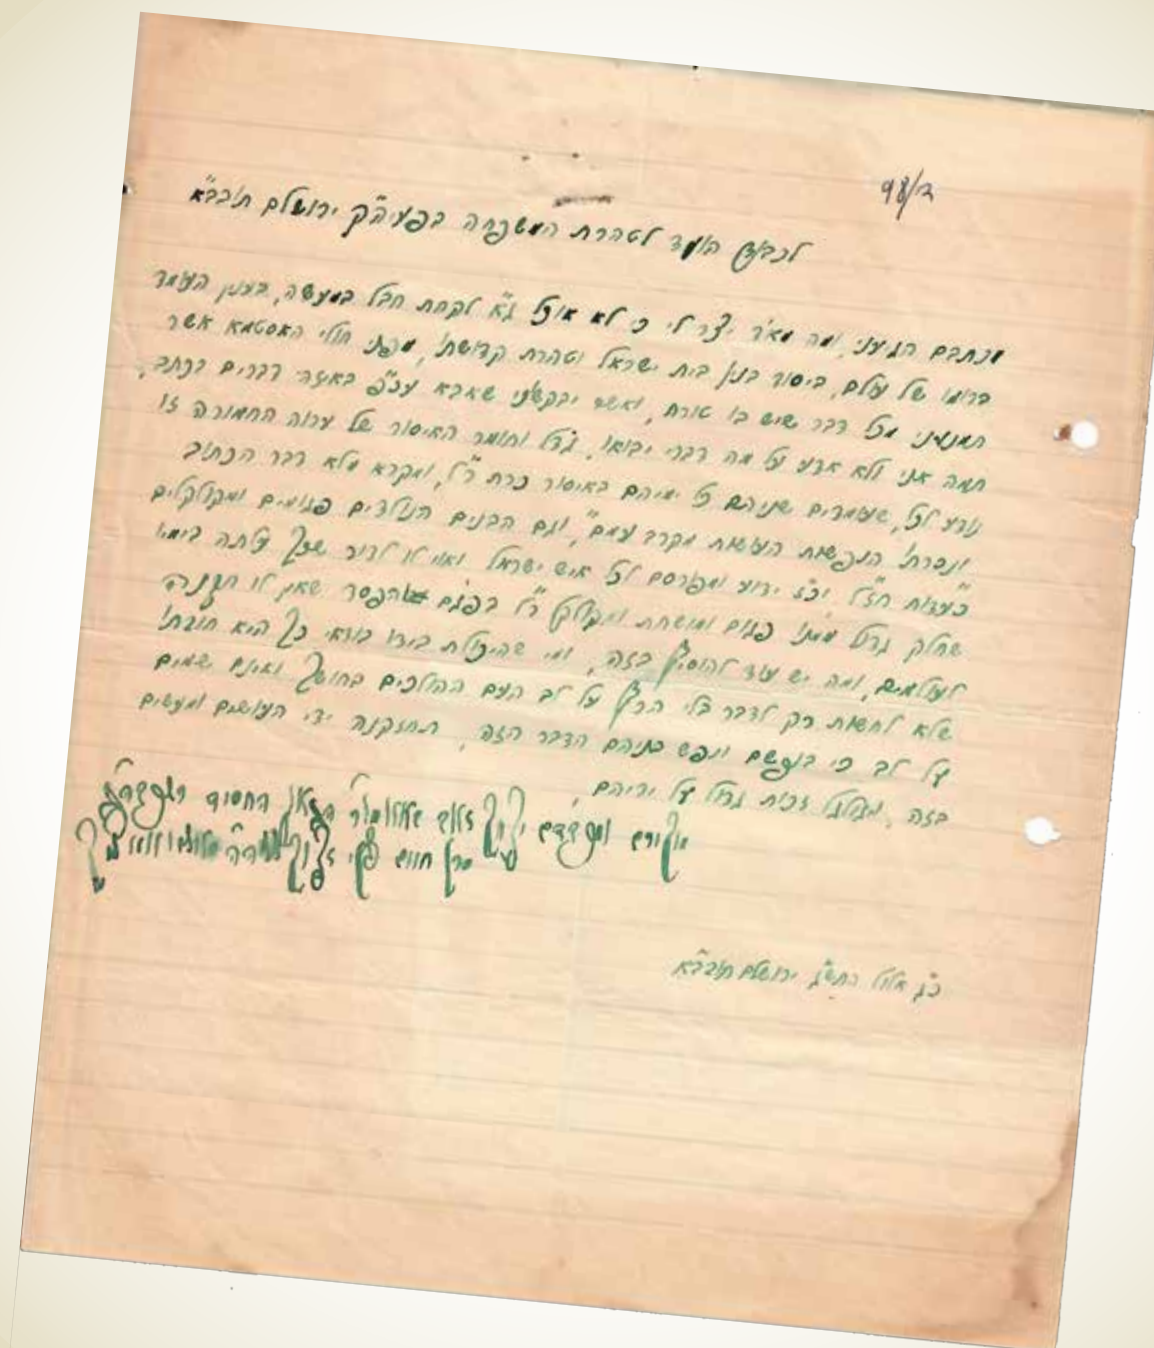 ד/98
לכבוד הועד לטהרת המשפחה בפעיה"ק ירושלם תובב"א
מכתבם הגיעני, ומה מאד יצר לי כי לא אוכל ג"א לקחת חבל במעשה, בענין העומד
ברומו של עולם, ביסוד בנין בית ישראל וטהרת קדושתו, מפני חולי האסטמא אשר
תמנעני מכל דבר שיש בו טורח, ואשר יבקשוני שאבא עכ"פ באיזה דברים בכתב,
תמה אני ולא אדע על מה דברי יבואו, גודל וחומר האיסור של ערוה החמורה זו
נודע לכל, שעומדים שניהם כל ימיהם באיסור כרת ר"ל, ומקרא מלא דבר הכתוב
ונכרתו הנפשות העושות מקרב עמם", וגם הבנים הנולדים פגומים ומקולקלים
כעדות חז"ל, וכ"ז ידוע ומפורסם לכל איש ישראל ואוי לו לדור שכך עלתה בימיו
שחלק גדול ממנו פגום ומושחת ומקולקל ר"ל בפגם והפסד שאין לו תקנה
לעולמים, ומה יש עוד להוסיף בזה, ומי שהיכולת בידו בודאי כך היא חובתו
שלא לחשות רק לדבר בלי הרף על לב העם ההולכים בחושך ואינם שמים
על לב כי בנפשם ונפש בניהם הדבר הזה, תחזקנה ידי העושים ומעשים
בזה, וגלגל זכות גדול על ידיהם,
זאב
חיים
כ"ג אלול ירושלם תובב"א